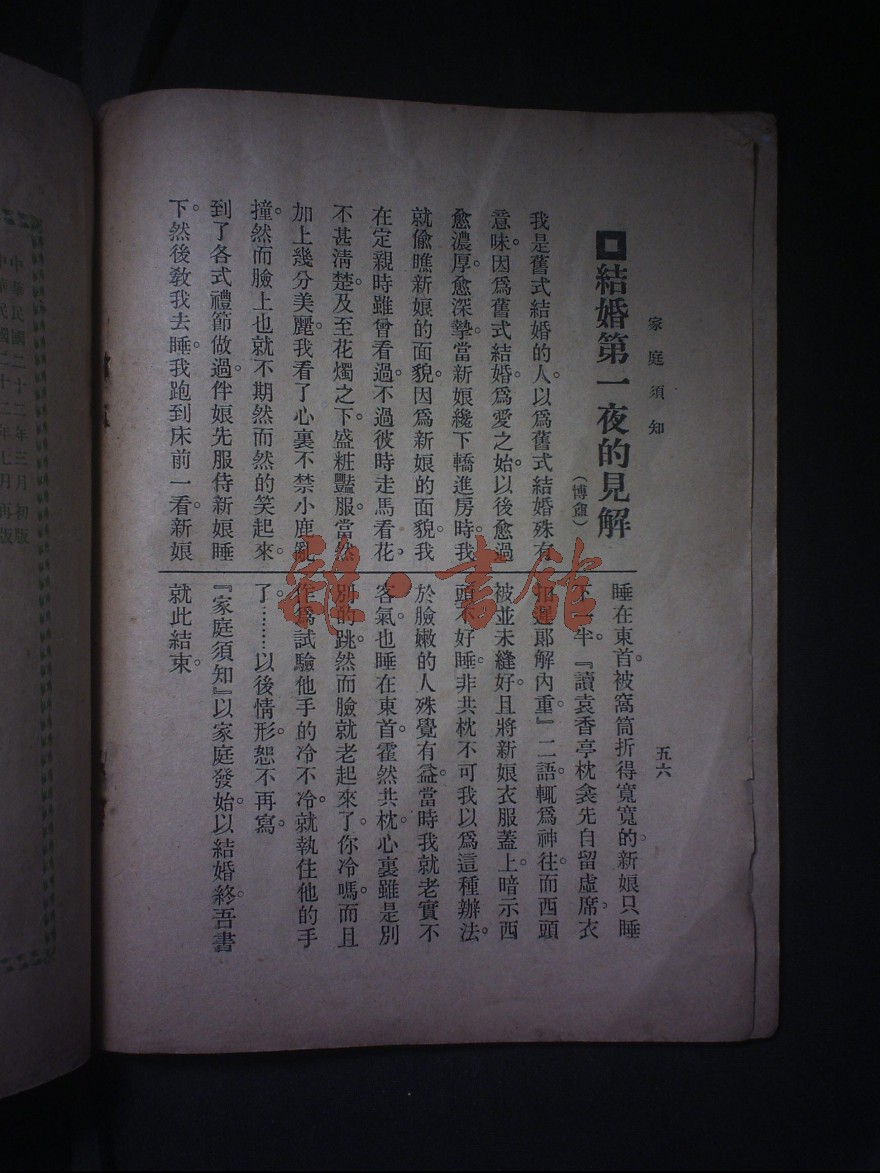 家庭須知
五六
結婚第一夜的見解
(博盦)
我是舊式結婚的人。以爲舊式結婚殊有
意味。因爲舊式結婚。爲愛之始。以後愈過
愈濃厚。愈深摯。當新娘纔下轎進房時。我
就偷瞧新娘的面貌。因爲新娘的面貌。我
在定親時雖曾看過。不過彼時走馬看花。
不甚淸楚。及至花燭之下。盛粧豔服。當然
加上幾分美麗。我看了心裏不禁小鹿亂
撞。然而臉上也就不期然而然的笑起來。
到了各式禮節做過。伴娘先服侍新娘睡
下。然後敎我去睡。我跑到床前一看。新娘
睡在東首。被窩筒折得寬寬的。新娘只睡
了一半。『讀袁香亭枕衾先自留虛席。衣
扣遲郞解內重』二語。輒爲神往。而西頭
被並未縫好。且將新娘衣服蓋上。暗示西
頭不好睡。非共枕不可。我以爲這種辦法。
於臉嫩的人。殊覺有益。當時我就老實不
客氣。也睡在東首。霍然共枕。心裏雖是別
別的跳。然而臉就老起來了。你冷嗎。而且
作爲試驗他手的冷不冷。就執住他的手
了………以後情形。恕不再寫。
『家庭須知』以家庭發始。以結婚終。吾書
就此結束。
雜·書館
中華民國二十二年三月初版
中華民國二十二年七月再版